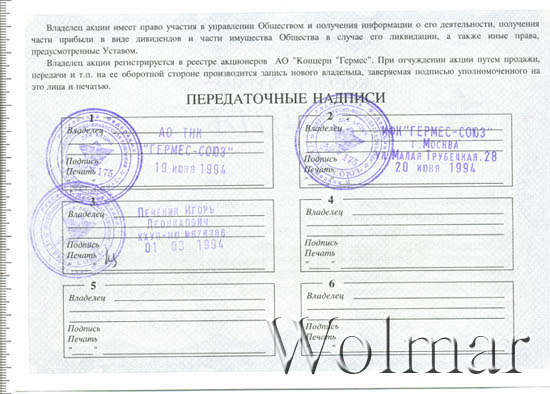 Владелец акции имеет право участия в управлении Обществом и получения информации о его деятельности, получения
части прибыли в виде дивидендов и части имущества Общества в случае его ликвидации, а также иные права,
предусмотренные Уставом.
Владелец акции регистрируется в реестре акционеров АО "Концерн "Гермес". При отчуждении акции путем продажи,
передачи и т.п. на ее оборотной стороне производится запись нового владельца, заверяемая подписью уполномоченного на
это лица и печатью.
ПЕРЕДАТОЧНЫЕ НАДПИСИ
1
Владелец АО ТНК
"ГЕРМЕС-СОЮЗ"
Подпись
Печать 175
19 июня 1994
2
Владелец ИФК "ГЕРМЕС-СОЮЗ"
г. Москва
ул. Малая Трубецкая. 28
Подпись
Печать 175
20 июня 1994
3
Владелец Печенин Игорь
Леонидович
Подпись
Печать
1994
4
Владелец
Подпись
Печать
5
Владелец
Подпись
Печать
6
Владелец
Подпись
Печать
Wolmar